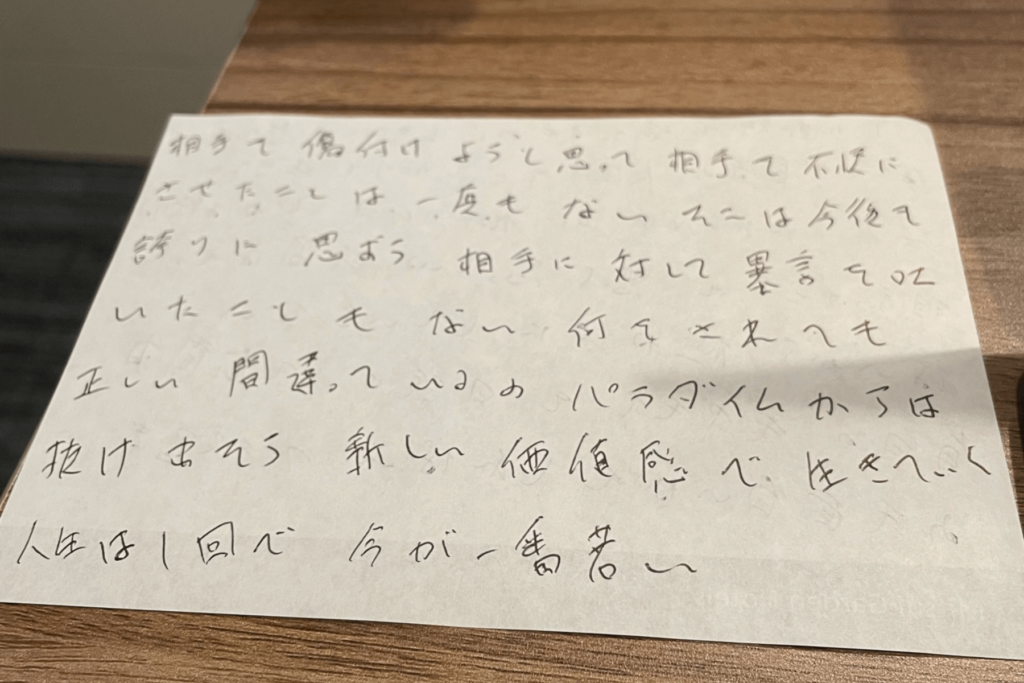 相手を傷付けようと思って相手を不快に
させたことは一度もない そこは今後も
誇りに思おう 相手に対して暴言を吐
いたこともない 何をされても
正しい間違っているのパラダイムからは
抜け出そう 新しい価値感で生きていく
人生は1回で 今が一番若い